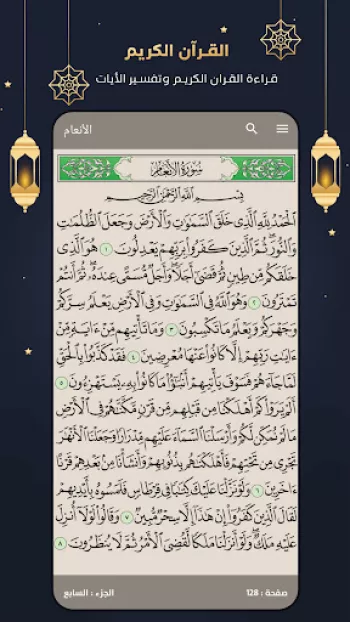 القرآن الكريم
قراءة القران الكريم وتفسير الأيات
الأنعام
سُورَةُ الأَنْعَامِ
بِسْمِ اللَّهِ الرَّحْمَٰنِ الرَّحِيمِ
الْحَمْدُ لِلَّهِ الَّذِي خَلَقَ السَّمَٰوَٰتِ وَالْأَرْضَ وَجَعَلَ الظُّلُمَٰتِ
وَالنُّورَ ثُمَّ الَّذِينَ كَفَرُوا بِرَبِّهِمْ يَعْدِلُونَ ١ هُوَ الَّذِي
خَلَقَكُم مِّن طِينٍ ثُمَّ قَضَىٰ أَجَلًا وَأَجَلٌ مُّسَمًّى عِندَهُ ثُمَّ أَنتُمْ
تَمْتَرُونَ ٢ وَهُوَ اللَّهُ فِي السَّمَٰوَٰتِ وَفِي الْأَرْضِ يَعْلَمُ سِرَّكُمْ
وَجَهْرَكُمْ وَيَعْلَمُ مَا تَكْسِبُونَ ٣ وَمَا تَأْتِيهِم مِّنْ ءَايَةٍ مِّنْ
ءَايَٰتِ رَبِّهِمْ إِلَّا كَانُوا عَنْهَا مُعْرِضِينَ ٤ فَقَدْ كَذَّبُوا بِالْحَقِّ
لَمَّا جَاءَهُمْ فَسَوْفَ يَأْتِيهِمْ أَنبَٰؤُا مَا كَانُوا بِهِ يَسْتَهْزِءُونَ ٥
أَلَمْ يَرَوْا كَمْ أَهْلَكْنَا مِن قَبْلِهِم مِّن قَرْنٍ مَّكَّنَّٰهُمْ فِي الْأَرْضِ
مَا لَمْ نُمَكِّن لَّكُمْ وَأَرْسَلْنَا السَّمَاءَ عَلَيْهِم مِّدْرَارًا وَجَعَلْنَا الْأَنْهَٰرَ
تَجْرِي مِن تَحْتِهِمْ فَأَهْلَكْنَٰهُم بِذُنُوبِهِمْ وَأَنشَأْنَا مِن بَعْدِهِمْ قَرْنًا
ءَاخَرِينَ ٦ وَلَوْ نَزَّلْنَا عَلَيْكَ كِتَٰبًا فِي قِرْطَاسٍ فَلَمَسُوهُ بِأَيْدِيهِمْ
لَقَالَ الَّذِينَ كَفَرُوا إِنْ هَٰذَا إِلَّا سِحْرٌ مُّبِينٌ ٧ وَقَالُوا لَوْلَا أُنزِلَ
عَلَيْهِ مَلَكٌ وَلَوْ أَنزَلْنَا مَلَكًا لَّقُضِيَ الْأَمْرُ ثُمَّ لَا يُنظَرُونَ ٨
صفحة : 128
الجزء : السابع